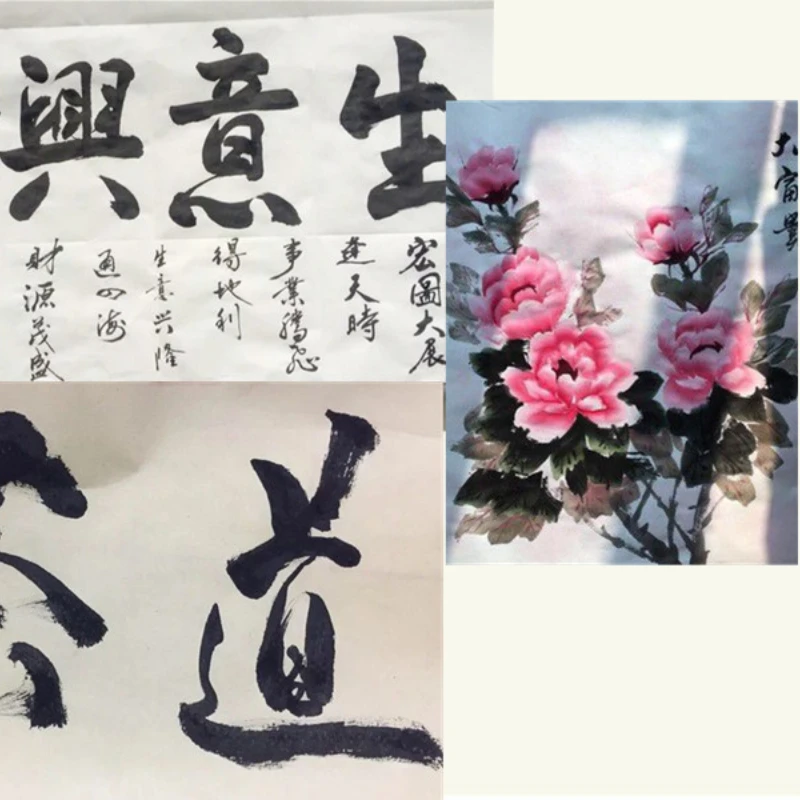 生意興
宏圖大展
逢天時
事業騰飛
得地利
生意兴隆
通四海
財源茂盛
大富貴
道